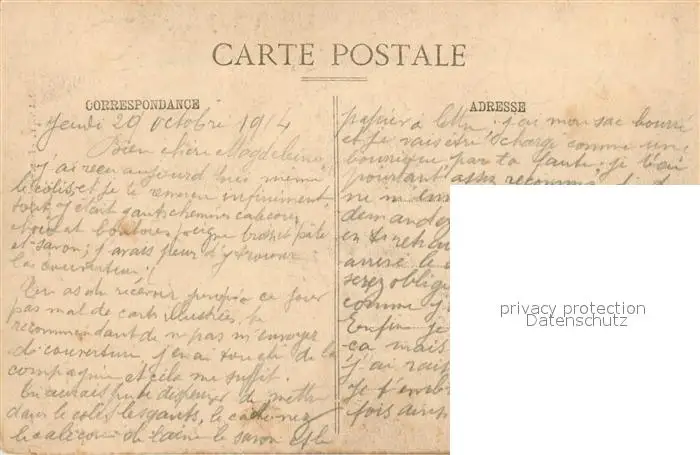 CARTE POSTALE
CORRESPONDANCE
Jeudi 29 octobre 1914
Bien chère Magdeleine
J'ai reçu aujourd'hui même
le colis, et je te remercie infiniment
tout y était gants chemises caleçons
et boutons, peigne brosse et pâte
et savon; j'avais peur d'y trouver
la couverture!!
Tu as dû recevoir jusqu'à ce jour
pas mal de cartes illustrées, te
recommandant de ne pas m'envoyer
de couverture j'en ai touché de la
compagnie et cela me suffit.
Tu aurais pu te dispenser de mettre
dans le colis les gants, le cache-nez
le caleçon de laine le savon et le
ADRESSE
papier à lettre, j'ai mon sac bourré
et je vais être chargé comme une
bourrique par ta faute, je t'avais
pourtant assez recommandé
ne m'en
demander
en te
arrivé le
serez oblig
comme j
Enfin je
ça mais
j'avais
Je t'emb
fois
privacy protection
Datenschutz